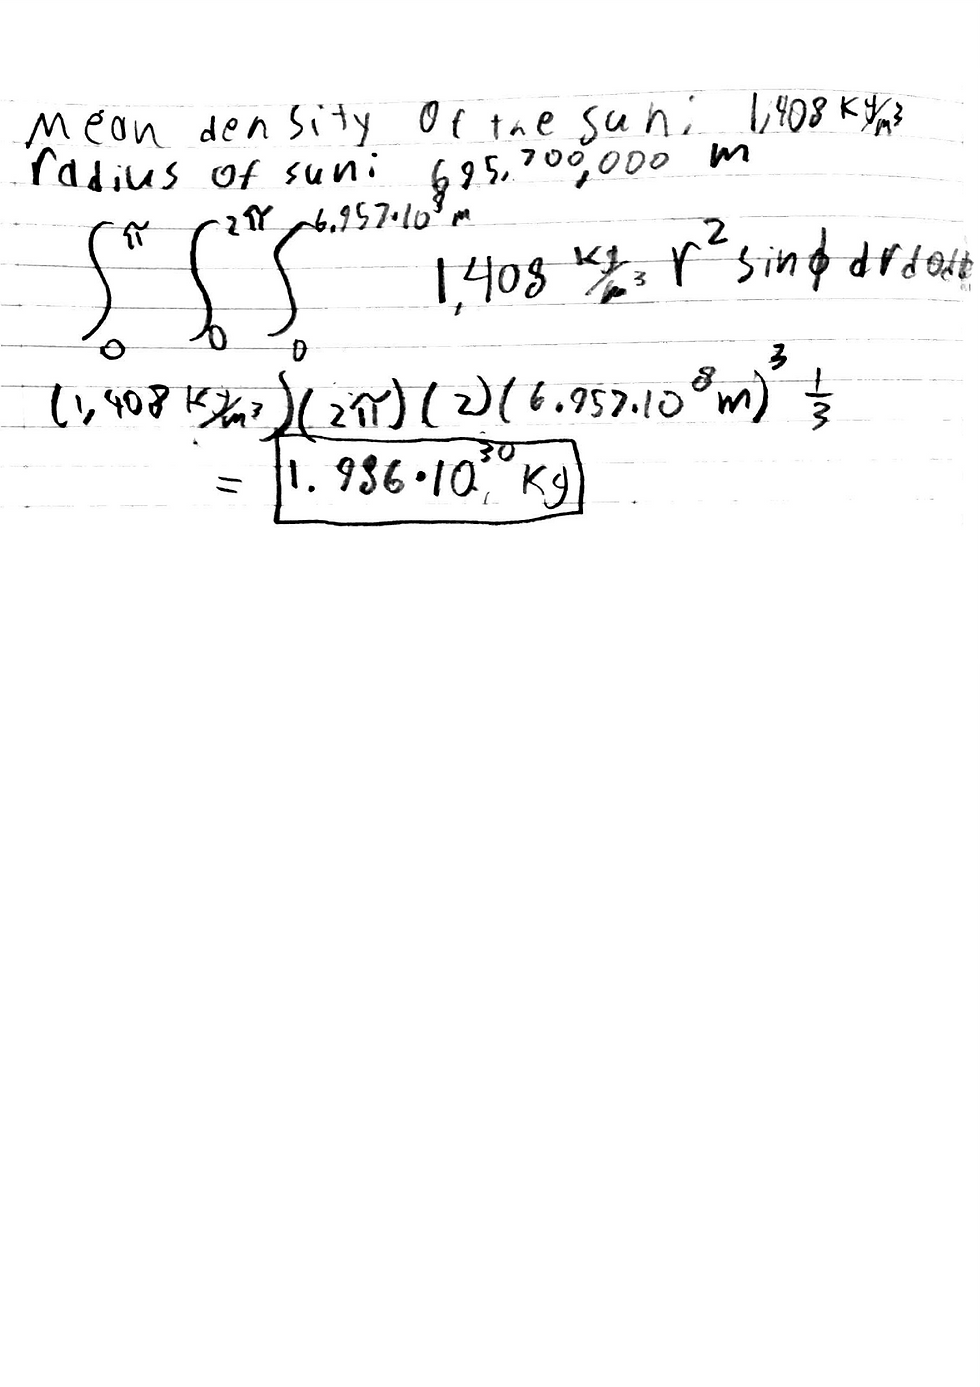 Mean density of the sun: 1,408 Kg/m³
radius of sun: 695,700,000 m
∫₀^π ∫₀^2π ∫₀^6.957·10⁸ m 1,408 Kg/m³ r² sinϕ dr dθ dϕ
(1,408 Kg/m³)(2π)(2)(6.957·10⁸ m)³ 1/3
= 1.986·10³⁰ Kg